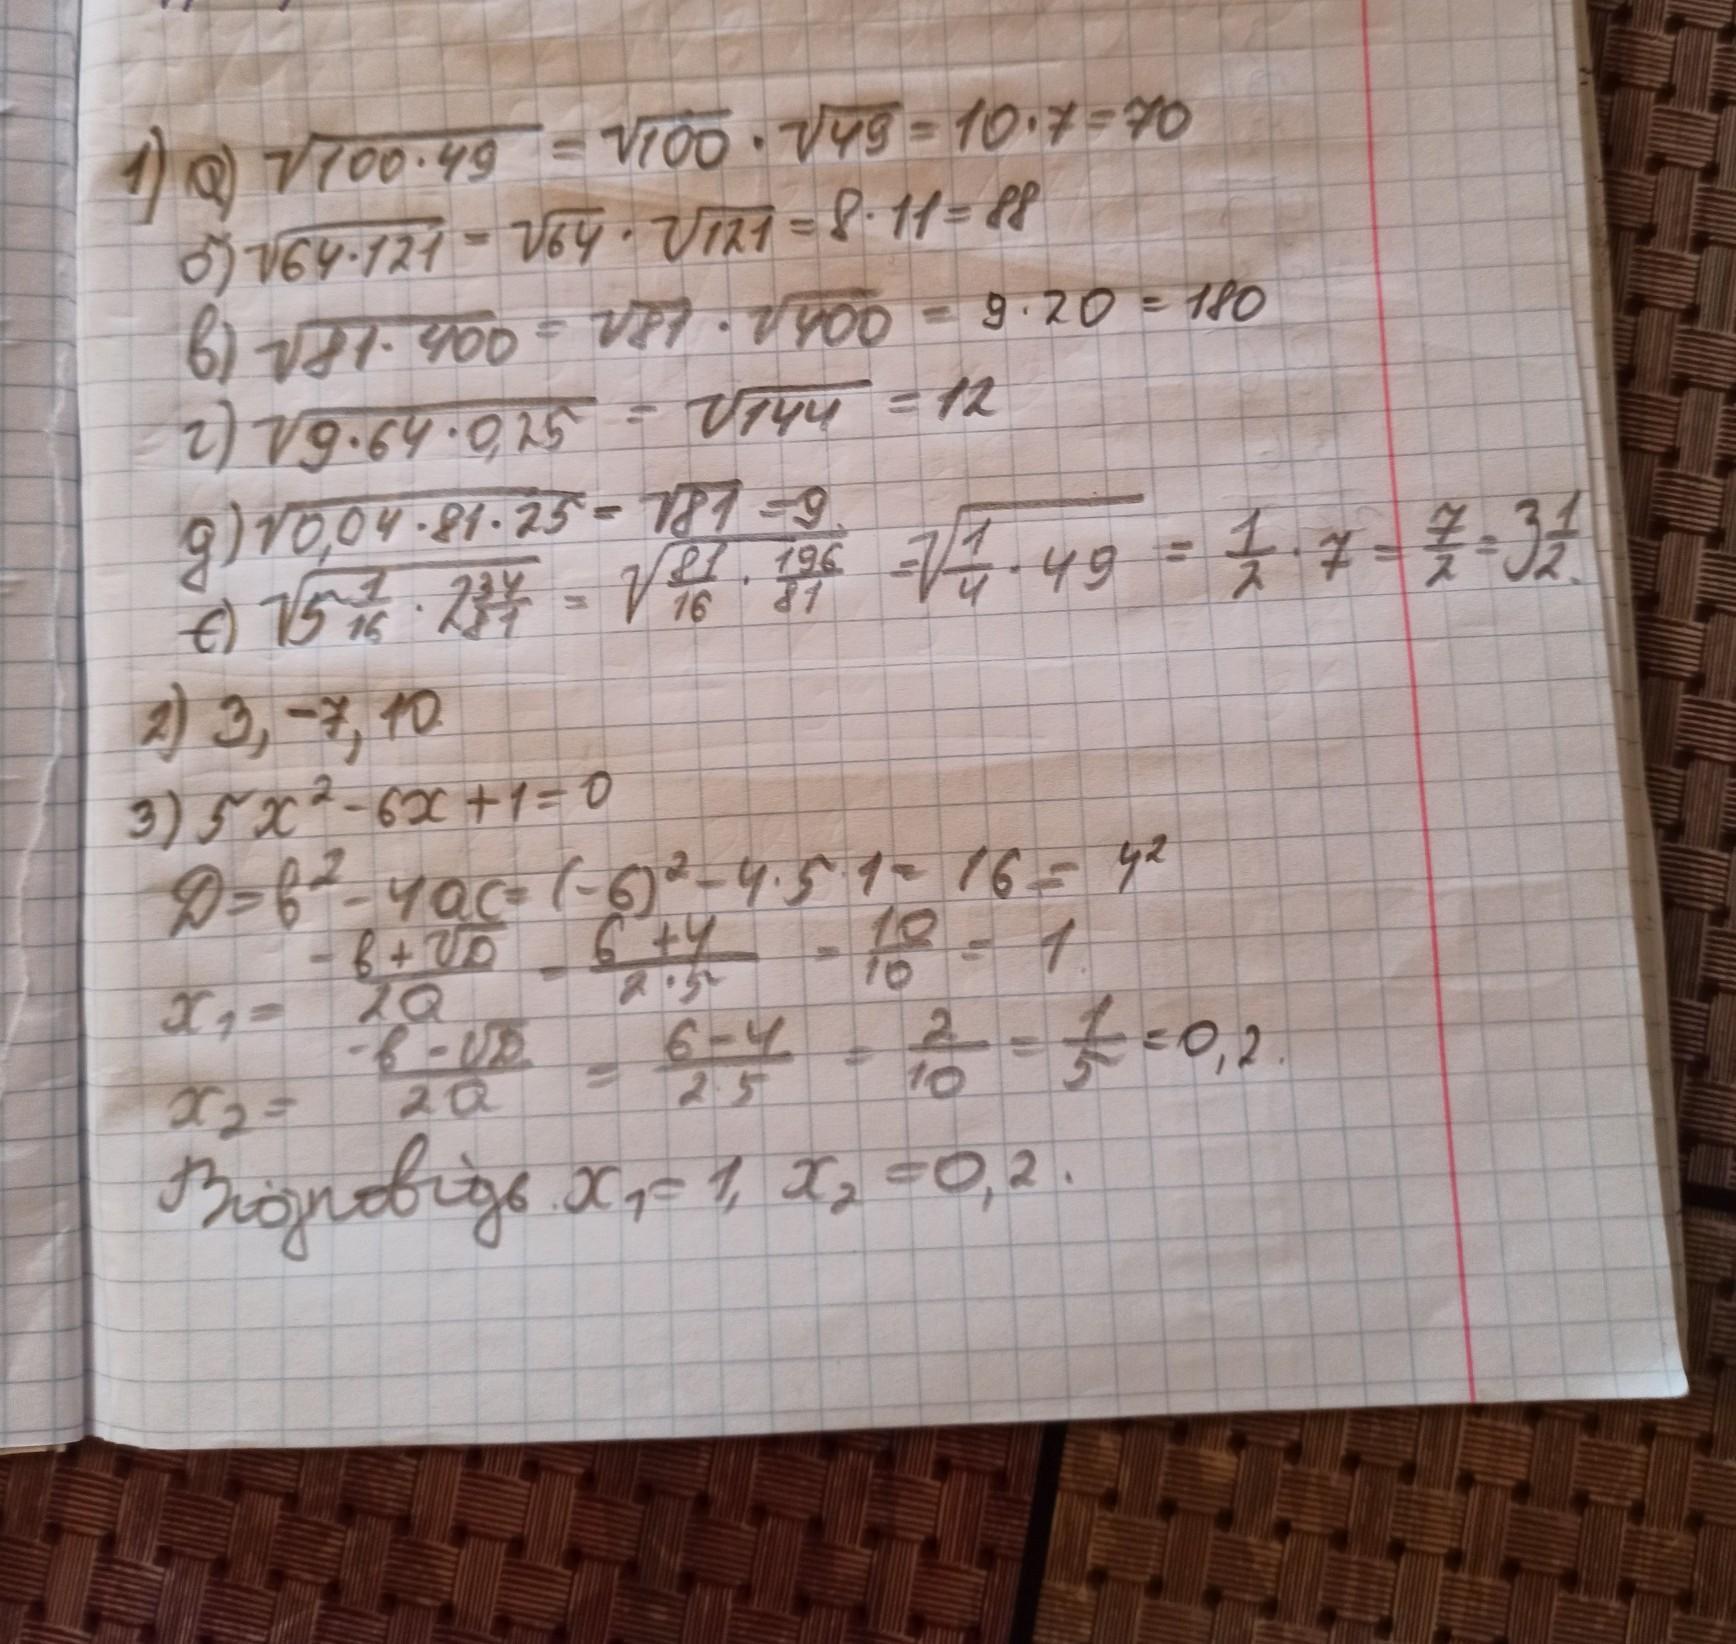 1) а) √100·49 = √100 · √49 = 10·7 = 70
б) √64·121 = √64 · √121 = 8·11 = 88
в) √81·400 = √81 · √400 = 9·20 = 180
г) √9·64·0,25 = √144 = 12
д) √0,04·81·25 = √81 = 9.
є) √5 1/16 · 2 34/81 = √81/16 · 196/81 = √1/4 · 49 = 1/2 · 7 = 7/2 = 3 1/2.
2) 3, -7, 10
3) 5x² - 6x + 1 = 0
D = b² - 4ac = (-6)² - 4·5·1 = 16 = 4²
x₁ = -b + √D/2a = 6 + 4/2·5 = 10/10 = 1.
x₂ = -b - √D/2a = 6 - 4/2·5 = 2/10 = 1/5 = 0,2.
Відповідь. x₁ = 1, x₂ = 0,2.